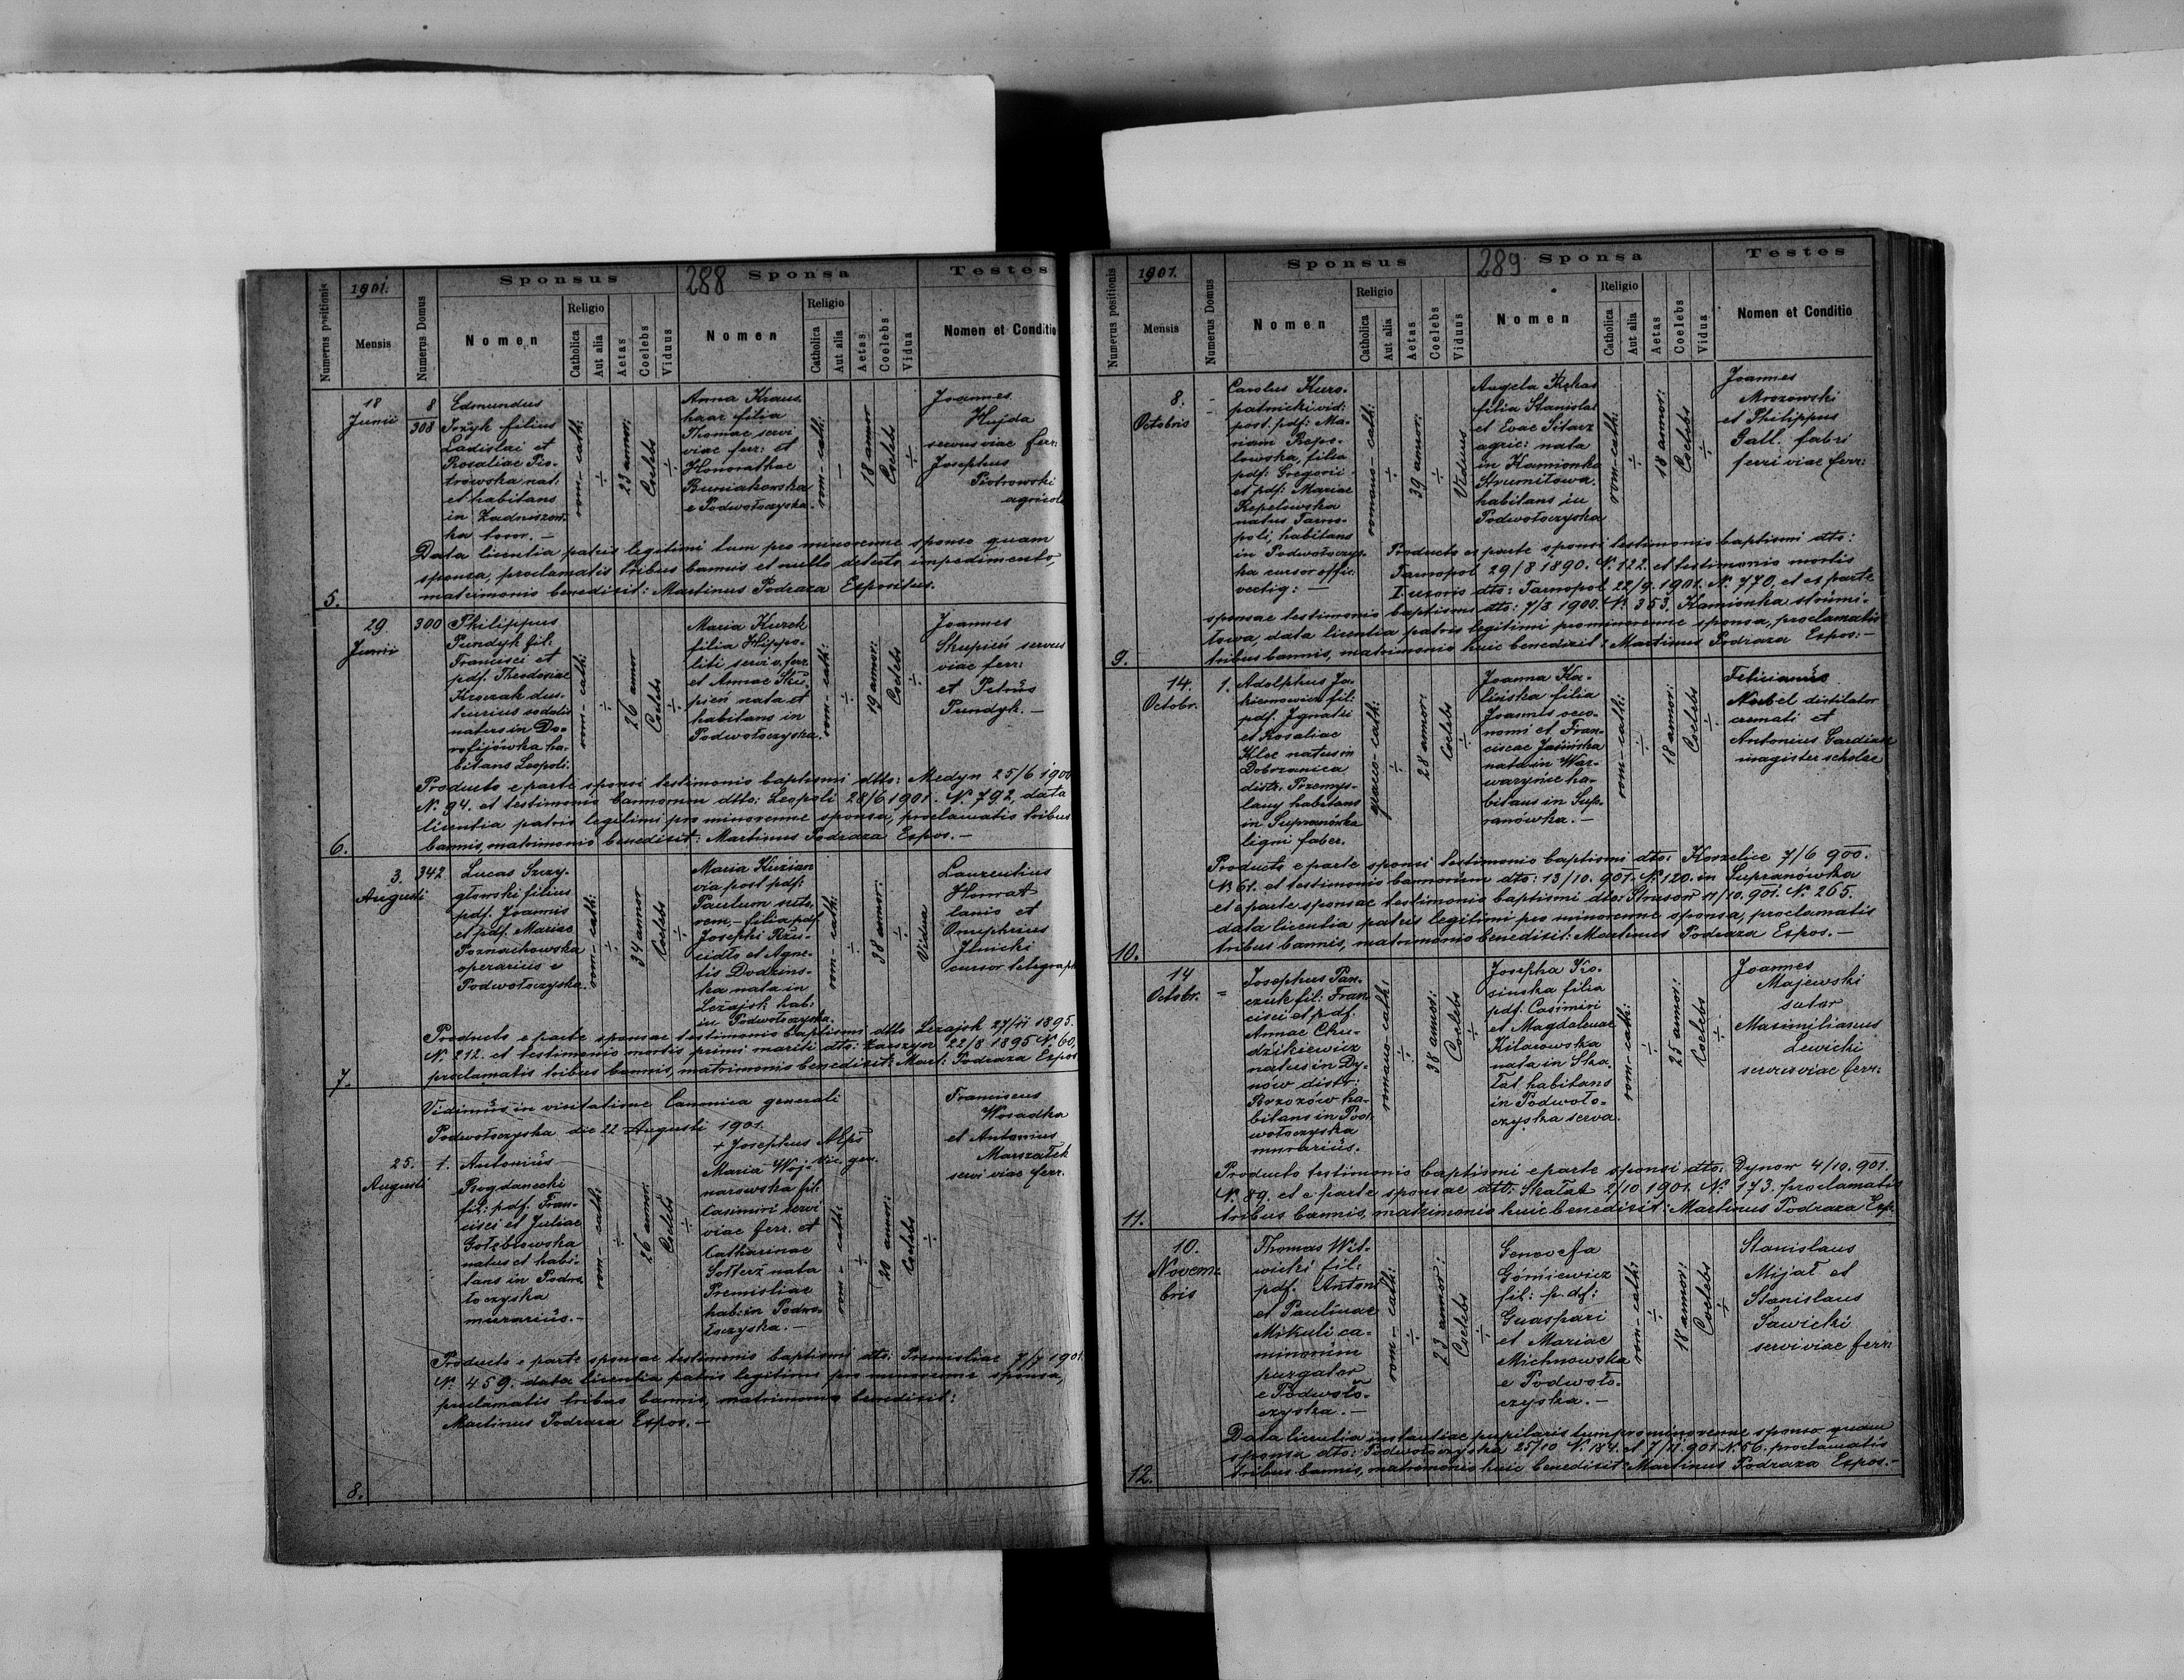 Numerus positionis
1901.
Mensis
Numerus Domus
Sponsus
288
Sponsa
Testes
Nomen
Religio
Catholica
Aut alia
Aetas
Coelebs
Viduus
Nomen
Religio
Catholica
Aut alia
Aetas
Coelebs
Vidua
Nomen et Conditio
5.
18
Junii
8
308
Edmundus
filius
Ladislai et
Rosaliae Pio-
trowska nat.
et habitans
in Zadniszow-
ka
rom-cath:
÷
23 annor:
Coelebs
÷
Anna Kraus
haar filia
Thomae servi
viae ferr: et
Honorathae
Buniakowska
e Podwołoczyska.
rom-cath:
—
18 annor
Coelebs
÷
Joannes
Hujda
servus viae ferr:
Josephus
Piotrowski
agricola
Data licentia patris legitimi tum pro minorenne sponso quam
sponsa, proclamatis tribus bannis et nullo detecto impedimento,
matrimonio benedixit: Martinus Podraza Expositus.
6.
29
Junii
300
Philippus
Pundyk fil:
Francisci et
pdf. Theodosiae
Kroczak dus-
trurius sodalis
natus in Do-
rofijówka ha-
bitans Leopoli.
rom-cath:
÷
26 annor
Coelebs
÷
Maria Kurek
filia Hippo-
liti servi v. ferr.
et Annae Sku-
pień nata et
habitans in
Podwołoczyska.
rom-cath:
÷
19 annor:
Coelebs
÷
Joannes
Skupień servus
viae ferr:
et Petrus
Pundyk. —
Producto e parte sponsi testimonio baptismi dtto: Medyn 25/6 1900
N. 94. et testimonio bannorum dtto: Leopoli 28/6 1901. N. 792, data
licentia patris legitimi pro minorenne sponsa, proclamatis tribus
bannis, matrimonio benedixit: Martinus Podraza Expos. —
7.
3.
Augusti
342
Lucas Szczy-
głowski filius
pdf. Joannis
et pdf. Mariae
Poznachowska
operarius e
Podwołoczyska.
rom-cath:
÷
34 annor
Coelebs
÷
Maria Kuzian
via post pdf:
Paulum suto-
rem - filia pdf
Josephi Rzu-
cidło et Agne-
tis Dodzins-
ka nata in
Leżajsk hab:
in Podwołoczyska.
rom-cath:
÷
38 annor:
÷
Vidua
Laurentius
Honrat
lanio et
Onuphrius
Ilnicki
cursor telegraph
Producto e parte sponsae testimonio baptismi dtto Leżajsk 27/VI 1895.
N. 212. et testimonio mortis primi mariti dto: Zarszyn 22/8 1895 N. 60,
proclamatis tribus bannis, matrimonio benedixit: Mart: Podraza Expos
8.
Vidimus in visitatione Canonica generali
Podwołoczyska die 22 Augusti 1901.
+ Josephus AEps
vic. gen.
25.
Augusti
1.
Antonius
Bogdanecki
fil: pdf. Fran-
cisci et Juliae
Gołębiowska
natus et habi-
tans in Podwo-
łoczyska
murarius. —
rom-cath:
÷
26 annor:
Coelebs
÷
Maria Woj-
narowska fil:
Casimiri servi
viae ferr. et
Catharinae
Sołterż nata
Premisliae
hab: in Podwo-
łoczyska. —
rom-cath:
÷
20 annor:
Coelebs
÷
Franciscus
Wosadka
et Antonius
Marszałek
servi viae ferr.
Producto e parte sponsae testimonio baptismi dto: Premisliae 7/7 1901.
N. 459. data licentia patris legitimi pro minorenne sponsa,
proclamatis tribus bannis, matrimonio benedixit:
Martinus Podraza Expos. —
Numerus positionis
1901.
Mensis
Numerus Domus
Sponsus
289
Sponsa
Testes
Nomen
Religio
Catholica
Aut alia
Aetas
Coelebs
Viduus
Nomen
Religio
Catholica
Aut alia
Aetas
Coelebs
Vidua
Nomen et Conditio
9.
8.
Octobris
Carolus Kuro-
patnicki vid:
post. pdf: Ma-
riam Repe-
lowska, filia
pdf: Gregorii
et pdf: Mariae
Repelowska
natus Tarno-
poli, habitans
in Podwołoczys-
ka cursor offic:
vectig: —
romano-cath:
÷
39 annor:
÷
Viduus
Angela Rękas
filia Stanislai
et Evae Sitarz
agric: nata
in Kamionka
Strumiłowa,
habitans in
Podwołoczyska
rom-cath:
÷
18 annor:
Coelebs
÷
Joannes
Mrozowski
et Philippus
Gall. fabri
ferri viae ferr:
Producto ex parte sponsi testimonio baptismi dto:
Tarnopol 29/8 1890. N. 122. et testimonio mortis
I uxoris dto: Tarnopol 22/9. 1901. N. 770, et ex parte
sponsae testimonio baptismi dto: 7/3 1900. N. 353. Kamionka strumi-
towa, data licentia patris legitimi pro minorenne sponsa, proclamatis
tribus bannis, matrimonio huic benedixit: Martinus Podraza Expos: —
10.
14.
Octobr.
1.
Adolphus Ja-
kienowicz fil:
pdf. Ignatii
et Rosaliae
Klec natus in
Dobrzanica
distr. Przemys-
lany habitans
in Supranówka
ligni faber.
graeco-cath:
÷
28 annor:
Coelebs
÷
Joanna Ka-
lińska filia
Joannis oeco-
nomi et Fran-
ciscae Jasińska
nata in War-
warzyńce ha-
bitans in Sup-
ranówka. —
rom-cath:
÷
18 annor:
Coelebs
÷
Felicianus
Nubel distilator
cremati et
Antonius Gardian
magister scholae
Producto e parte sponsi testimonio baptismi dto: Korzelice 7/6 900.
N 61. et testimonio bannorum dto: 13/10. 901. N. 120. in Supranówka
et e parte sponsae testimonio baptismi dto: Strusów 11/10. 901. N. 265.
data licentia patris legitimi pro minorenne sponsa, proclamatis
tribus bannis, matrimonio benedixit: Martinus Podraza Expos. —
11.
14
Octobr.
=
Josephus Pan-
czuk fil: Fran-
cisci et pdf.
Annae Chu-
dzikiewicz
natus in Dy-
nów distr:
Brzozów ha-
bitans in Pod-
wołoczyska
murarius.
romano-cath:
÷
38 annor:
Coelebs
÷
Josepha Ko-
sinska filia
pdf. Casimiri
et Magdalenae
Kitarowska
nata in Ska-
łat habitans
in Podwoło-
czyska serva.
rom-cath:
÷
25 annor:
Coelebs
÷
Joannes
Majewski
sutor
Maximilianus
Lewicki
servus viae ferr:
Producto testimonio baptismi e parte sponsi dto: Dynow 4/10. 901.
N. 89. et e parte sponsae dtto: Skałat 2/10 1901. N. 173. proclamatis
tribus bannis, matrimonio huic benedixit: Martinus Podraza Exp.
12.
10.
Novem-
bris
Thomas Wit-
wicki fil:
pdf. Antoni
et Paulinae
Mikuli ca-
minorum
purgator
e Podwoło-
czyska. —
rom-cath:
÷
23 annor:
Coelebs
÷
Genovefa
Górniewicz
fil: pdf:
Guaspari
et Mariae
Michnowska
e Podwoło-
czyska. —
rom-cath:
÷
18 annor:
Coelebs
÷
Stanislaus
Mijał et
Stanislaus
Sawicki
servi viae ferr:
Data licentia instantiae pupilaris tum pro minorenne sponso quam
sponsa dto: Podwołoczyska 25/10 N. 184. et 7/11. 901. N. 56. proclamatis
tribus bannis, matrimonio huic benedixit: Martinus Podraza Expos. —